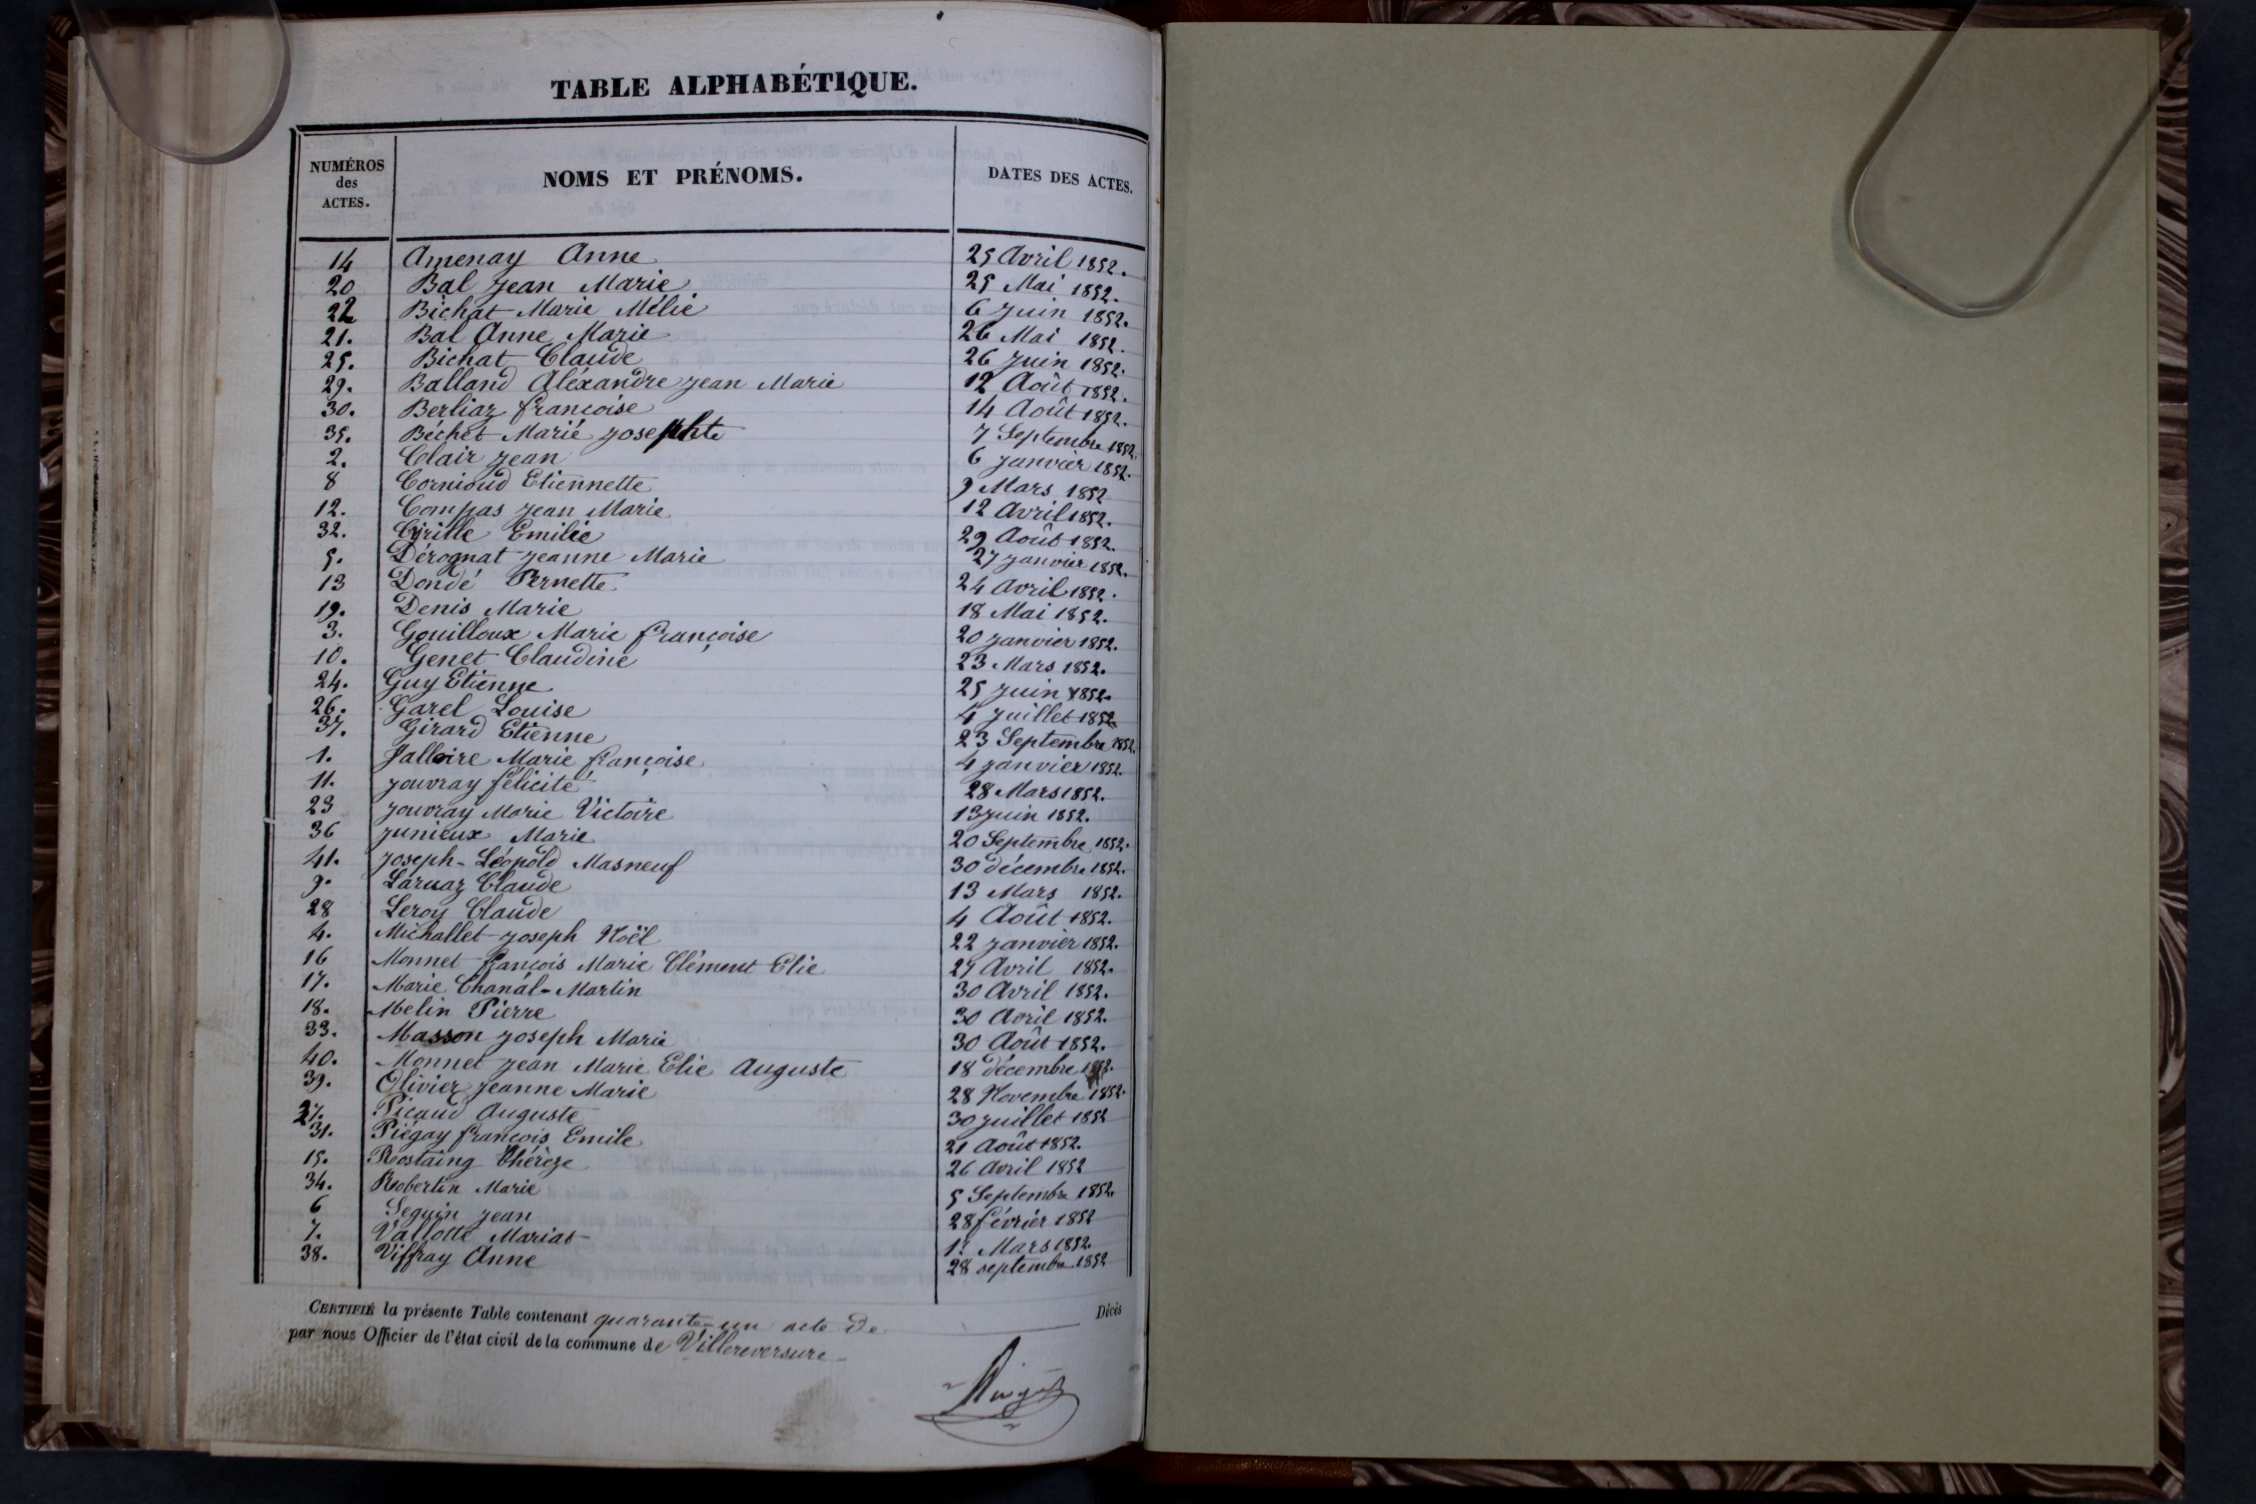 TABLE ALPHABÉTIQUE.
NUMÉROS des ACTES. NOMS ET PRÉNOMS. DATES DES ACTES.
14 Amenay Anne 25 Avril 1852.
20 Bal Jean Marie 25 Mai 1852.
22 Bichat Marie Mélie 6 Juin 1852.
21. Bal Anne Marie 26 Mai 1852.
25. Bichat Claude 26 Juin 1852.
29. Balland Aléxandre Jean Marie 12 Août 1852.
30. Berliaz françoise 14 Août 1852.
35. Béchet Marie Josephte 7 Septembre 1852.
2. Clair Jean 6 Janvier 1852.
8 Cornioud Etiennette 9 Mars 1852
12. Compas Jean Marie 12 Avril 1852.
32. Cyrille Emilie 29 Août 1852.
5. Dérognat Jeanne Marie 27 Janvier 1852.
13 Dondé Pernette 24 Avril 1852.
19. Denis Marie 18 Mai 1852.
3. Gouilloux Marie françoise 20 Janvier 1852.
10. Genet Claudine 23 Mars 1852.
24. Guy Etienne 25 Juin 1852.
26. Garel Louise 4 Juillet 1852
37. Girard Etienne 23 Septembre 1852.
1. Jalloire Marie françoise 4 Janvier 1852.
11. Jouvray félicité 28 Mars 1852.
23 Jouvray Marie Victoire 13 Juin 1852.
36 Junieux Marie 20 Septembre 1852.
41. Joseph-Léopold Masneuf 30 décembre 1852.
9. Laruaz Claude 13 Mars 1852.
28 Leroy Claude 4 Août 1852.
4. Michallet Joseph Noël 22 Janvier 1852.
16 Monnet françois Marie Clément Elie 27 Avril 1852.
17. Marie Chanal-Martin 30 Avril 1852.
18. Melin Pierre 30 Avril 1852.
33. Masson Joseph Marie 30 Août 1852.
40. Monnet Jean Marie Elie Auguste 18 décembre 1852.
39. Olivier Jeanne Marie 28 Novembre 1852.
27. Picaud Auguste 30 Juillet 1852
31. Piégay françois Emile 21 Août 1852.
15. Rostaing Thérèze 26 Avril 1852
34. Robertin Marie 5 Septembre 1852.
6 Seguin Jean 28 février 1852
7. Vallotte Marias 1er Mars 1852.
38. Viffray Anne 28 septembre 1852
CERTIFIÉ la présente Table contenant quarante-un acte de Décès
par nous Officier de l'état civil de la commune de Villereversure